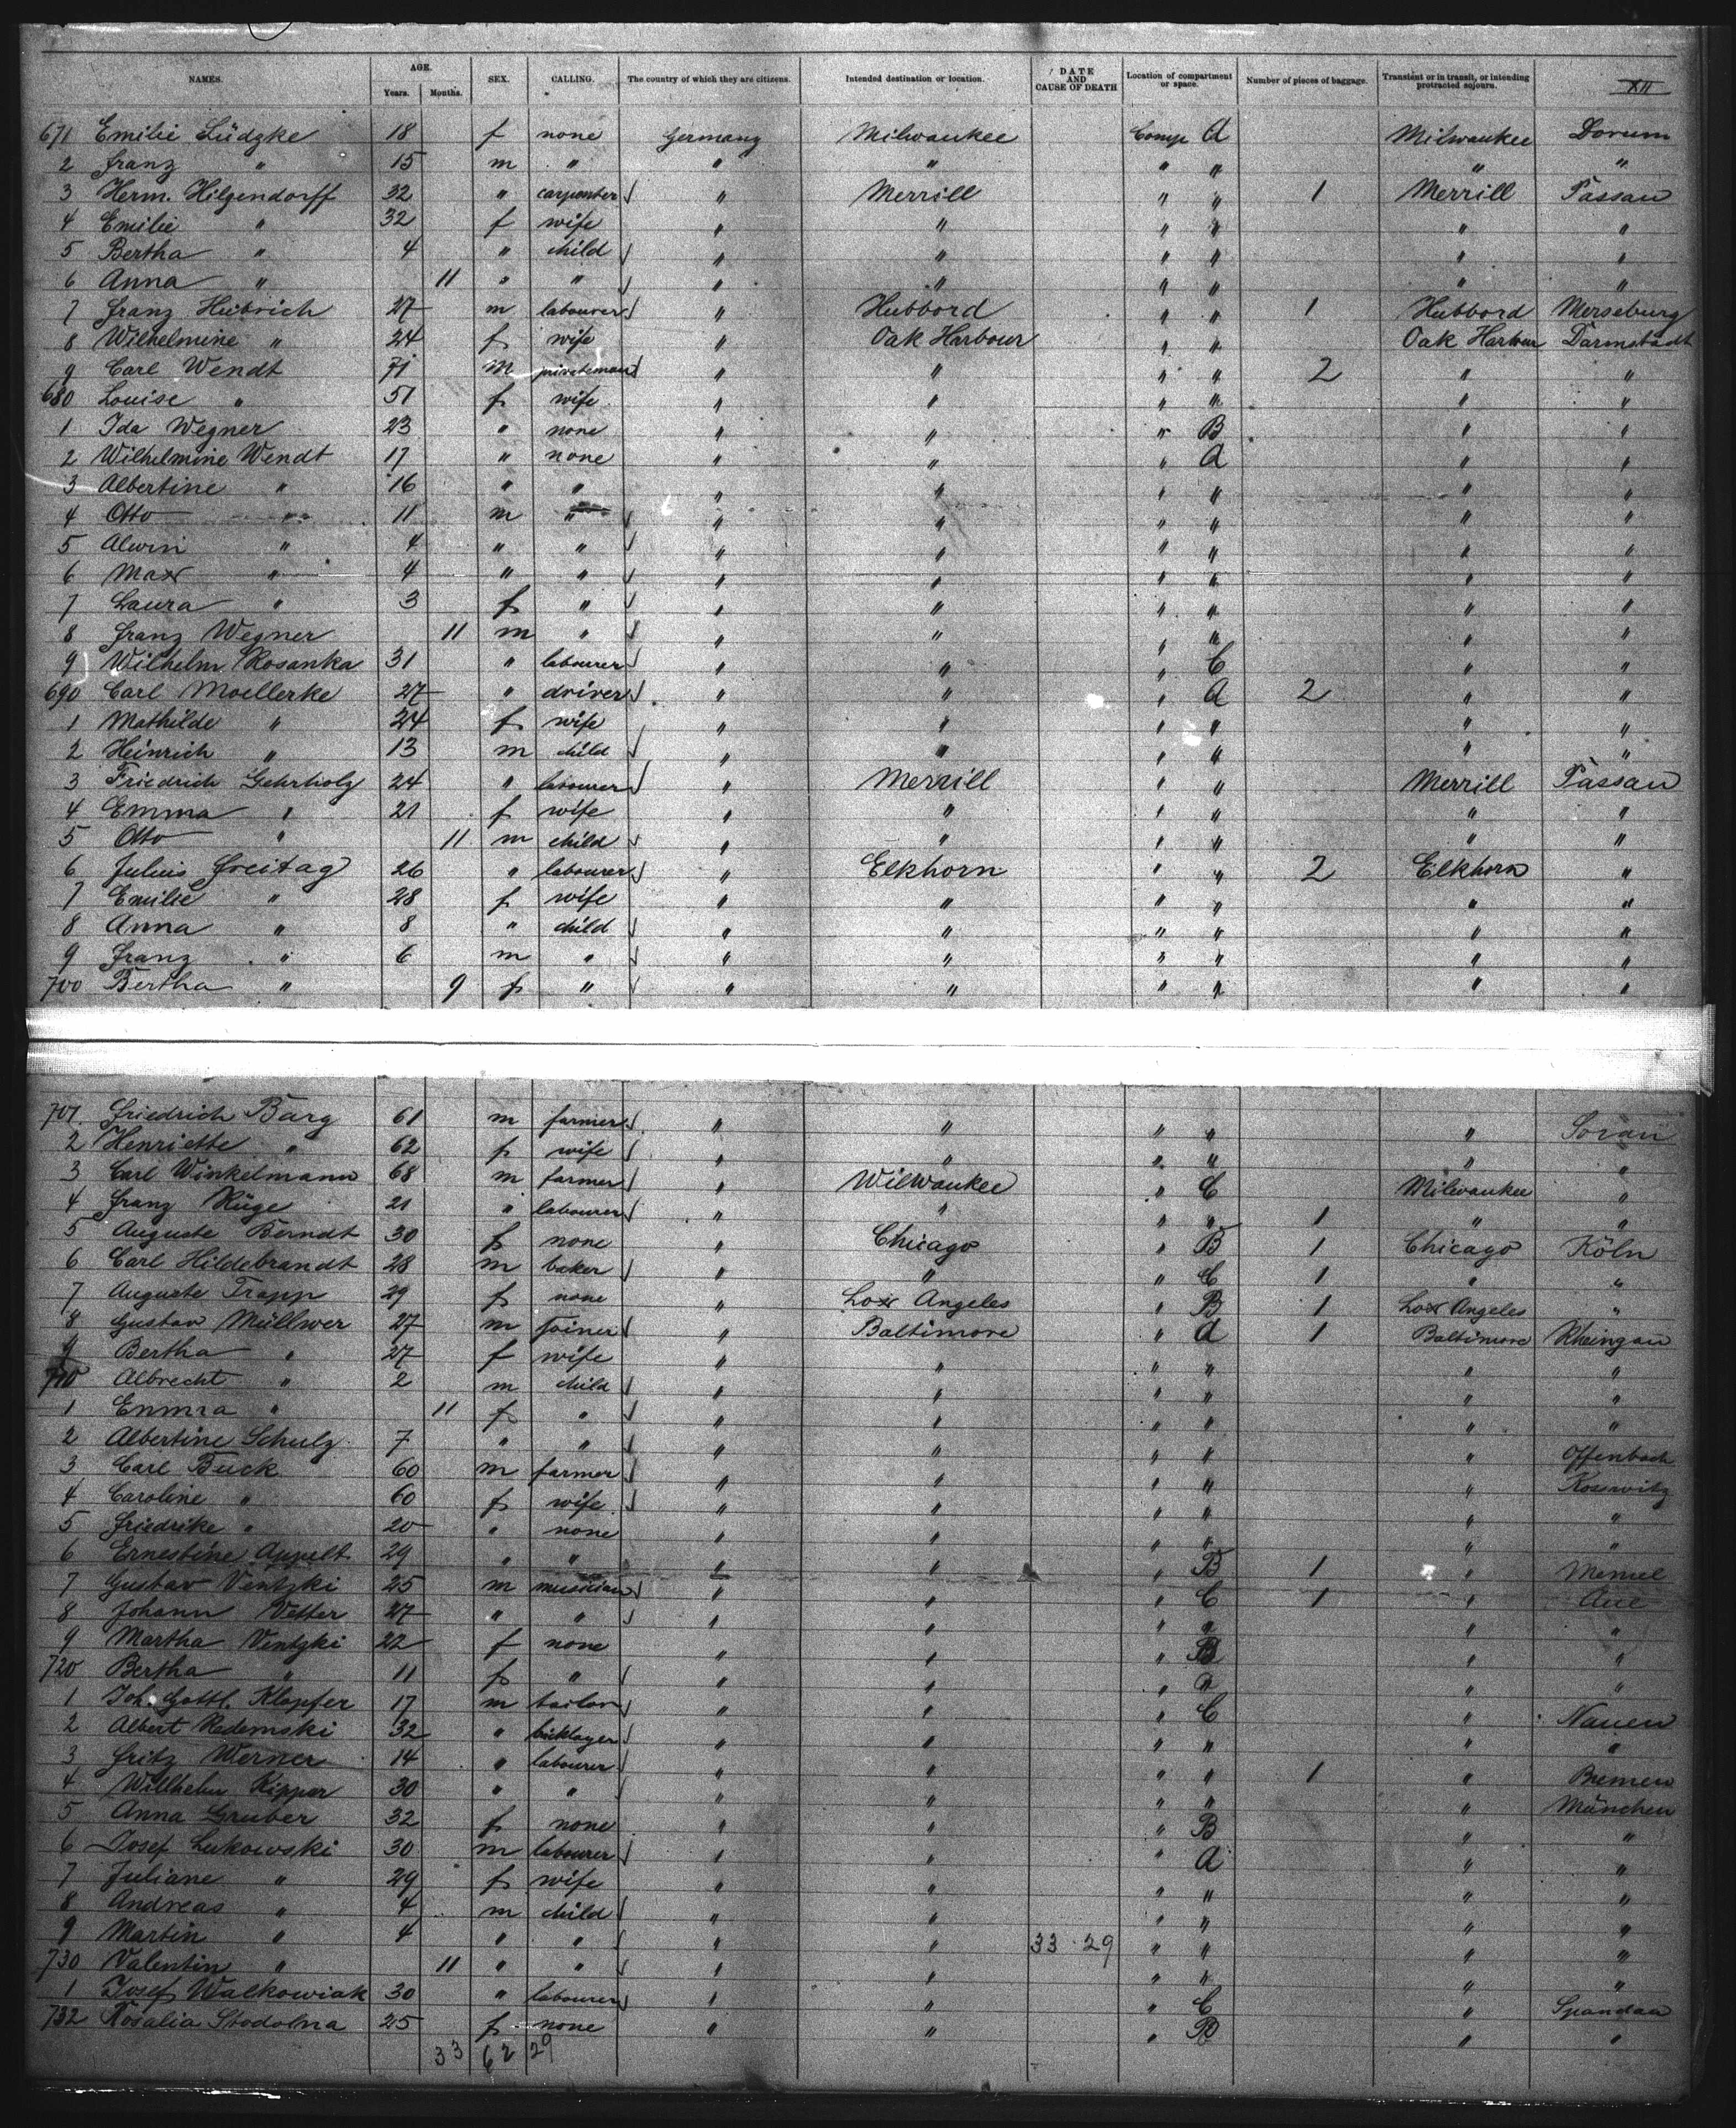 NAMES. AGE. Years. Months. SEX. CALLING. The country of which they are citizens. Intended destination or location. DATE AND CAUSE OF DEATH Location of compartment or space. Number of pieces of baggage. Transient or in transit, or intending protracted sojourn. XII
671 Emilie Lüdzke 18 f none Germany Milwaukee Comp A Milwaukee Dorum
2 Franz " 15 m " " " " " " "
3 Herm. Hilgendorff 32 " carpenter " Merrill " " 1 Merrill Passau
4 Emilie " 32 f wife " " " " " "
5 Bertha " 4 " child " " " " " "
6 Anna " 11 " " " " " " " "
7 Franz Hübrich 27 m labourer " Hubbord " " 1 Hubbord Merseburg
8 Wilhelmine " 24 f wife " Oak Harbour " " Oak Harbour Darmstadt
9 Carl Wendt 71 m privateman " " " " 2 " "
680 Louise " 51 f wife " " " " " "
1 Ida Wegner 23 " none " " " B " "
2 Wilhelmine Wendt 17 " none " " " A " "
3 Albertine " 16 " " " " " " " "
4 Otto " 11 m " " " " " " "
5 Alwin " 4 " " " " " " " "
6 Max " 4 " " " " " " " "
7 Laura " 3 f " " " " " " "
8 Franz Wegner 11 m " " " " " " "
9 Wilhelm Rosanka 31 " labourer " " " C " "
690 Carl Moellerke 27 " driver " " " A 2 " "
1 Mathilde " 24 f wife " " " " " "
2 Heinrich " 13 m child " " " " " "
3 Friedrich Gehrholz 24 " labourer " Merrill " " Merrill Passau
4 Emma " 21 f wife " " " " " "
5 Otto " 11 m child " " " " " "
6 Julius Freitag 26 " labourer " Elkhorn " " 2 Elkhorn "
7 Emilie " 28 f wife " " " " " "
8 Anna " 8 " child " " " " " "
9 Franz " 6 m " " " " " " "
700 Bertha " 9 f " " " " " " "
701 Friedrich Barg 61 m farmer " " " " " Sorau
2 Henriette " 62 f wife " " " " " "
3 Carl Winkelmann 68 m farmer " Wilwaukee " C Milwaukee "
4 Franz Rüge 21 " labourer " " " " 1 " "
5 Auguste Berndt 30 f none " Chicago " B 1 Chicago Köln
6 Carl Hildebrandt 28 m baker " " " C 1 " "
7 Auguste Trapp 29 f none " Los Angeles " B 1 Los Angeles "
8 Gustav Müllwer 27 m joiner " Baltimore " A 1 Baltimore Rheingau
9 Bertha " 27 f wife " " " " " "
710 Albrecht " 2 m child " " " " " "
1 Emma " 11 f " " " " " " "
2 Albertine Schulz 7 " " " " " " " Offenbach
3 Carl Buck 60 m farmer " " " " " Kosewitz
4 Caroline " 60 f wife " " " " " "
5 Friedrike " 20 " none " " " " " "
6 Ernestine Appelt 29 " " " " " B 1 " Memel
7 Gustav Ventzki 25 m musician " " " C 1 " Aue
8 Johann Vetter 27 " " " " " " " "
9 Martha Ventzki 22 f none " " " B " "
720 Bertha " 11 f " " " " A " "
1 Joh. Gottl. Klopfer 17 m tailor " " " C " Nauen
2 Albert Redemski 32 " bricklayer " " " " " "
3 Fritz Werner 14 " labourer " " " " 1 " Bremen
4 Willhelm Kipper 30 " " " " " " " München
5 Anna Gruber 32 f none " " " B " "
6 Josef Lukowski 30 m labourer " " " A " "
7 Juliane " 29 f wife " " " " " "
8 Andreas " 4 m child " " " " " "
9 Martin " 4 " " " " 33 29 " " " "
730 Valentin " 11 " " " " " " " "
1 Josef Walkowiak 30 " labourer " " " C " Spandau
732 Rosalia Stodolna 25 f none " " " B " "
33 62 29